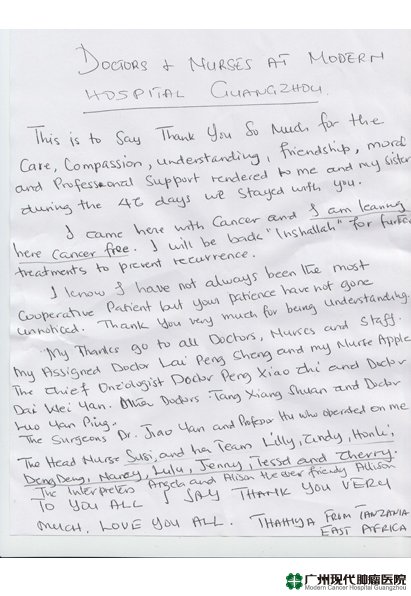 DOCTORS & NURSES AT MODERN
HOSPITAL GUANGZHOU.
This is to Say Thank You So Much for the
Care, Compassion, understanding, friendship, moral
and Professional Support rendered to me and my sister
during the 46 days we stayed with you.
I came here with Cancer and I am leaving
here Cancer free. I will be back "Inshallah" for further
treatments to prevent recurrence.
I know I have not always been the most
Cooperative Patient but your patience have not gone
unnoticed. Thank you very much for being understanding.
My Thanks go to all Doctors, Nurses and Staff.
My Assigned Doctor Lai Peng Sheng and my Nurse Apple
The Chief Oncologist Doctor Peng Xiao Chi and Doctor
Dai Wei Yan. Doctors: Tang Xiang Shuan and Doctor
Luo Yan Ping.
The Surgeons Dr. Jiao Yan and Professor Hu who operated on me
The Head Nurse Susi, and her Team Lilly, Cindy, Honki
Deng Deng, Nancy, Lulu, Jenny, Tessel and Cherry.
The Interpreters Angela and Alison the ever friendly Allison
TO YOU ALL I SAY THANK YOU VERY
MUCH. LOVE YOU ALL. THAHIYA FROM TANZANIA
EAST AFRICA
广州现代肿瘤医院
Modern Cancer Hospital Guangzhou